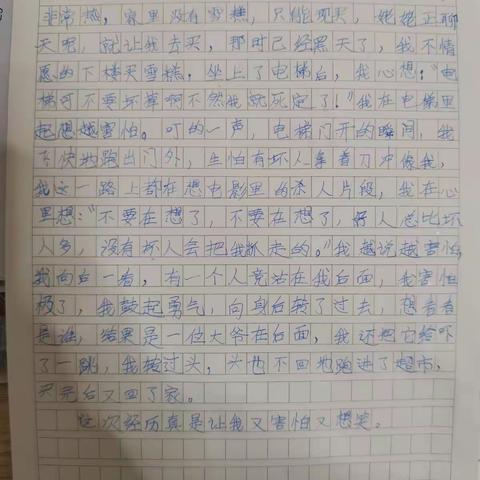 非常热，家里没有雪糕，只能现买，姥姥正聊
天呢，就让我去买，那时已经黑天了，我不情
愿的下楼买雪糕，坐上了电梯后，我心想："电
梯可不要坏掉啊不然我就死定了！"我在电梯里
越想越害怕。叮的一声，电梯门开的瞬间，我
飞快地跑出门外，生怕有坏人拿着刀冲像我，
我这一路上都在想电影里的杀人片段，我在心
里想："不要在想了，不要在想了，好人总比坏
人多，没有坏人会把我抓走的。"我越说越害怕，
我向后一看，有一个人竟站在我后面，我害怕
极了，我鼓起勇气，向身后转了过去，想看看
是谁，结果是一位大爷在后面，我还把它给吓
了一跳，我转过头，头也不回地跑进了超市，
买完后又回了家。
这次经历真是让我又害怕又想笑。